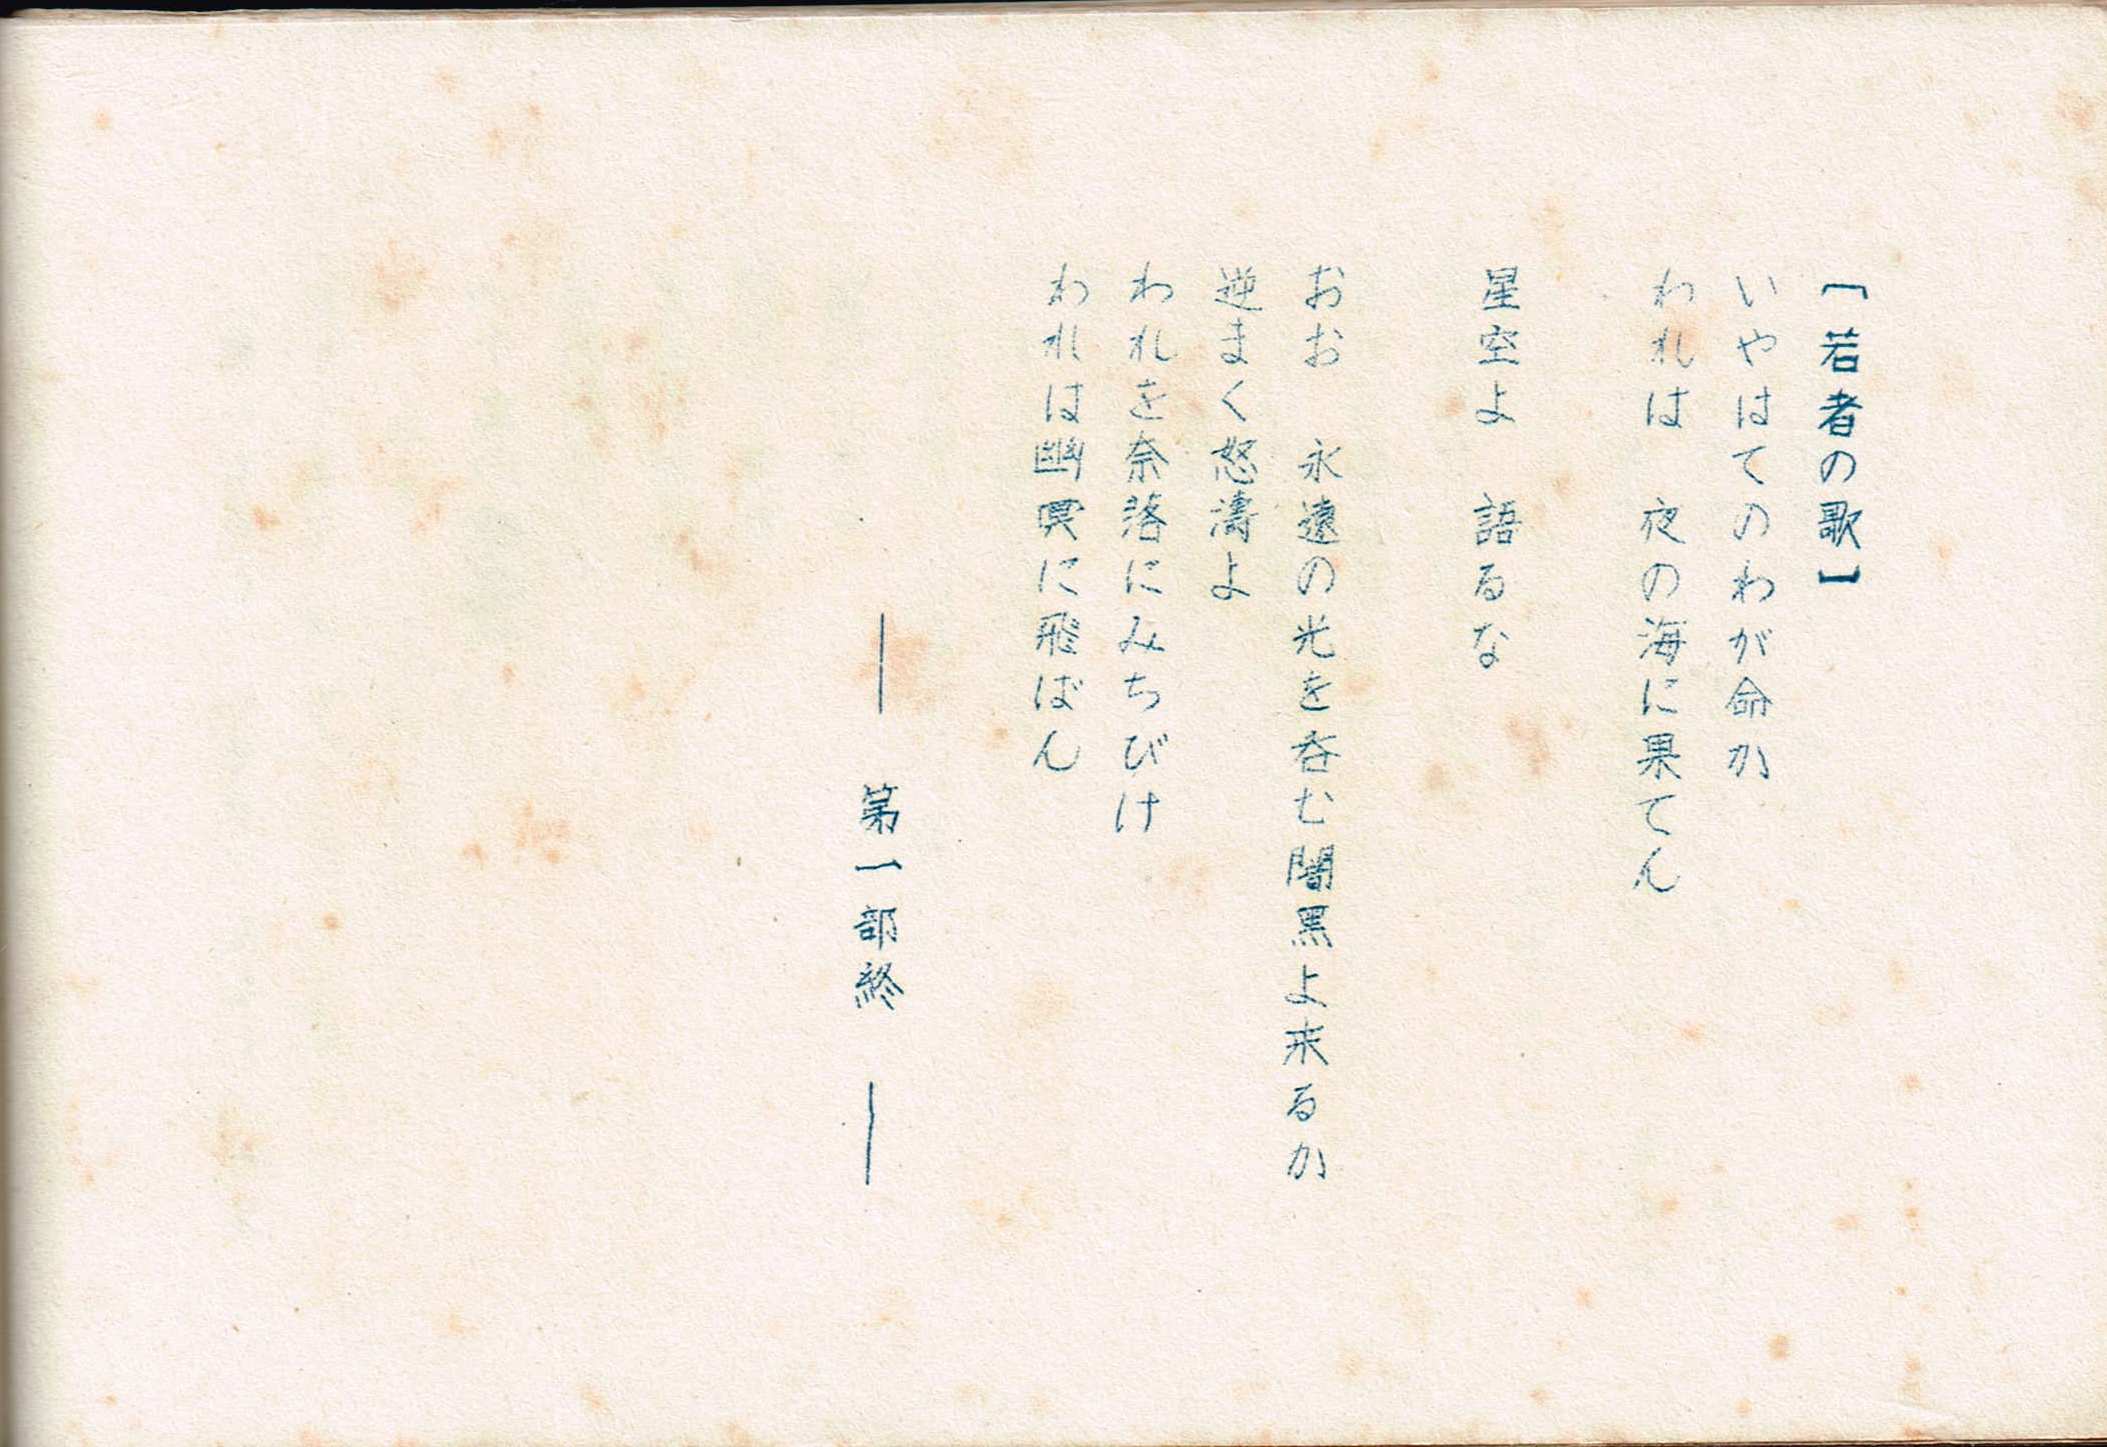 「若者の歌」
いやはてのわが命か
われは　夜の海に果てん
星空よ　語るな
おお　永遠の光を呑む闇黒よ来るか
逆まく怒濤よ
われを奈落にみちびけ
われは幽冥に飛ばん
――　第一部終　――